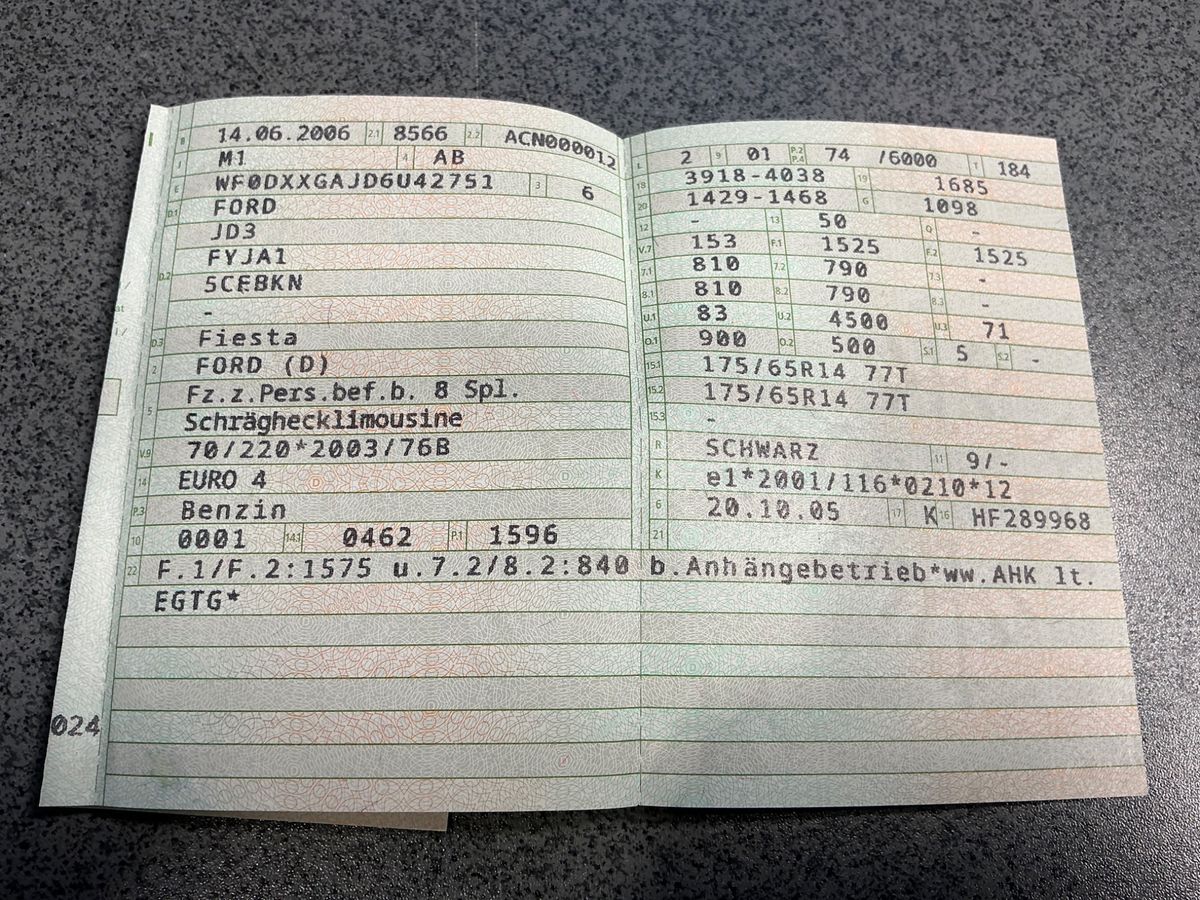 B 14.06.2006 2.1 8566 2.2 ACN000012
J M1 4 AB
E WF0DXXGAJD6U42751 3 6
D.1 FORD
JD3
FYJA1
D.2 5CEBKN
-
D.3 Fiesta
2 FORD (D)
Fz.z.Pers.bef.b. 8 Spl.
5 Schräghecklimousine
V.9 70/220*2003/76B
14 EURO 4
P.3 Benzin
10 0001 14.1 0462 P.1 1596
L 2 9 01 P.2 P.4 74 /6000 T 184
18 3918-4038 19 1685
20 1429-1468 G 1098
12 - 13 50 Q -
V.7 153 F.1 1525 F.2 1525
7.1 810 7.2 790 7.3 -
8.1 810 8.2 790 8.3 -
U.1 83 U.2 4500 U.3 71
O.1 900 O.2 500 S.1 5 S.2 -
15.1 175/65R14 77T
15.2 175/65R14 77T
15.3 -
R SCHWARZ 11 9/-
K e1*2001/116*0210*12
6 20.10.05 17 K 16 HF289968
21
22 F.1/F.2:1575 u.7.2/8.2:840 b.Anhängebetrieb*ww.AHK lt.
EGTG*
024